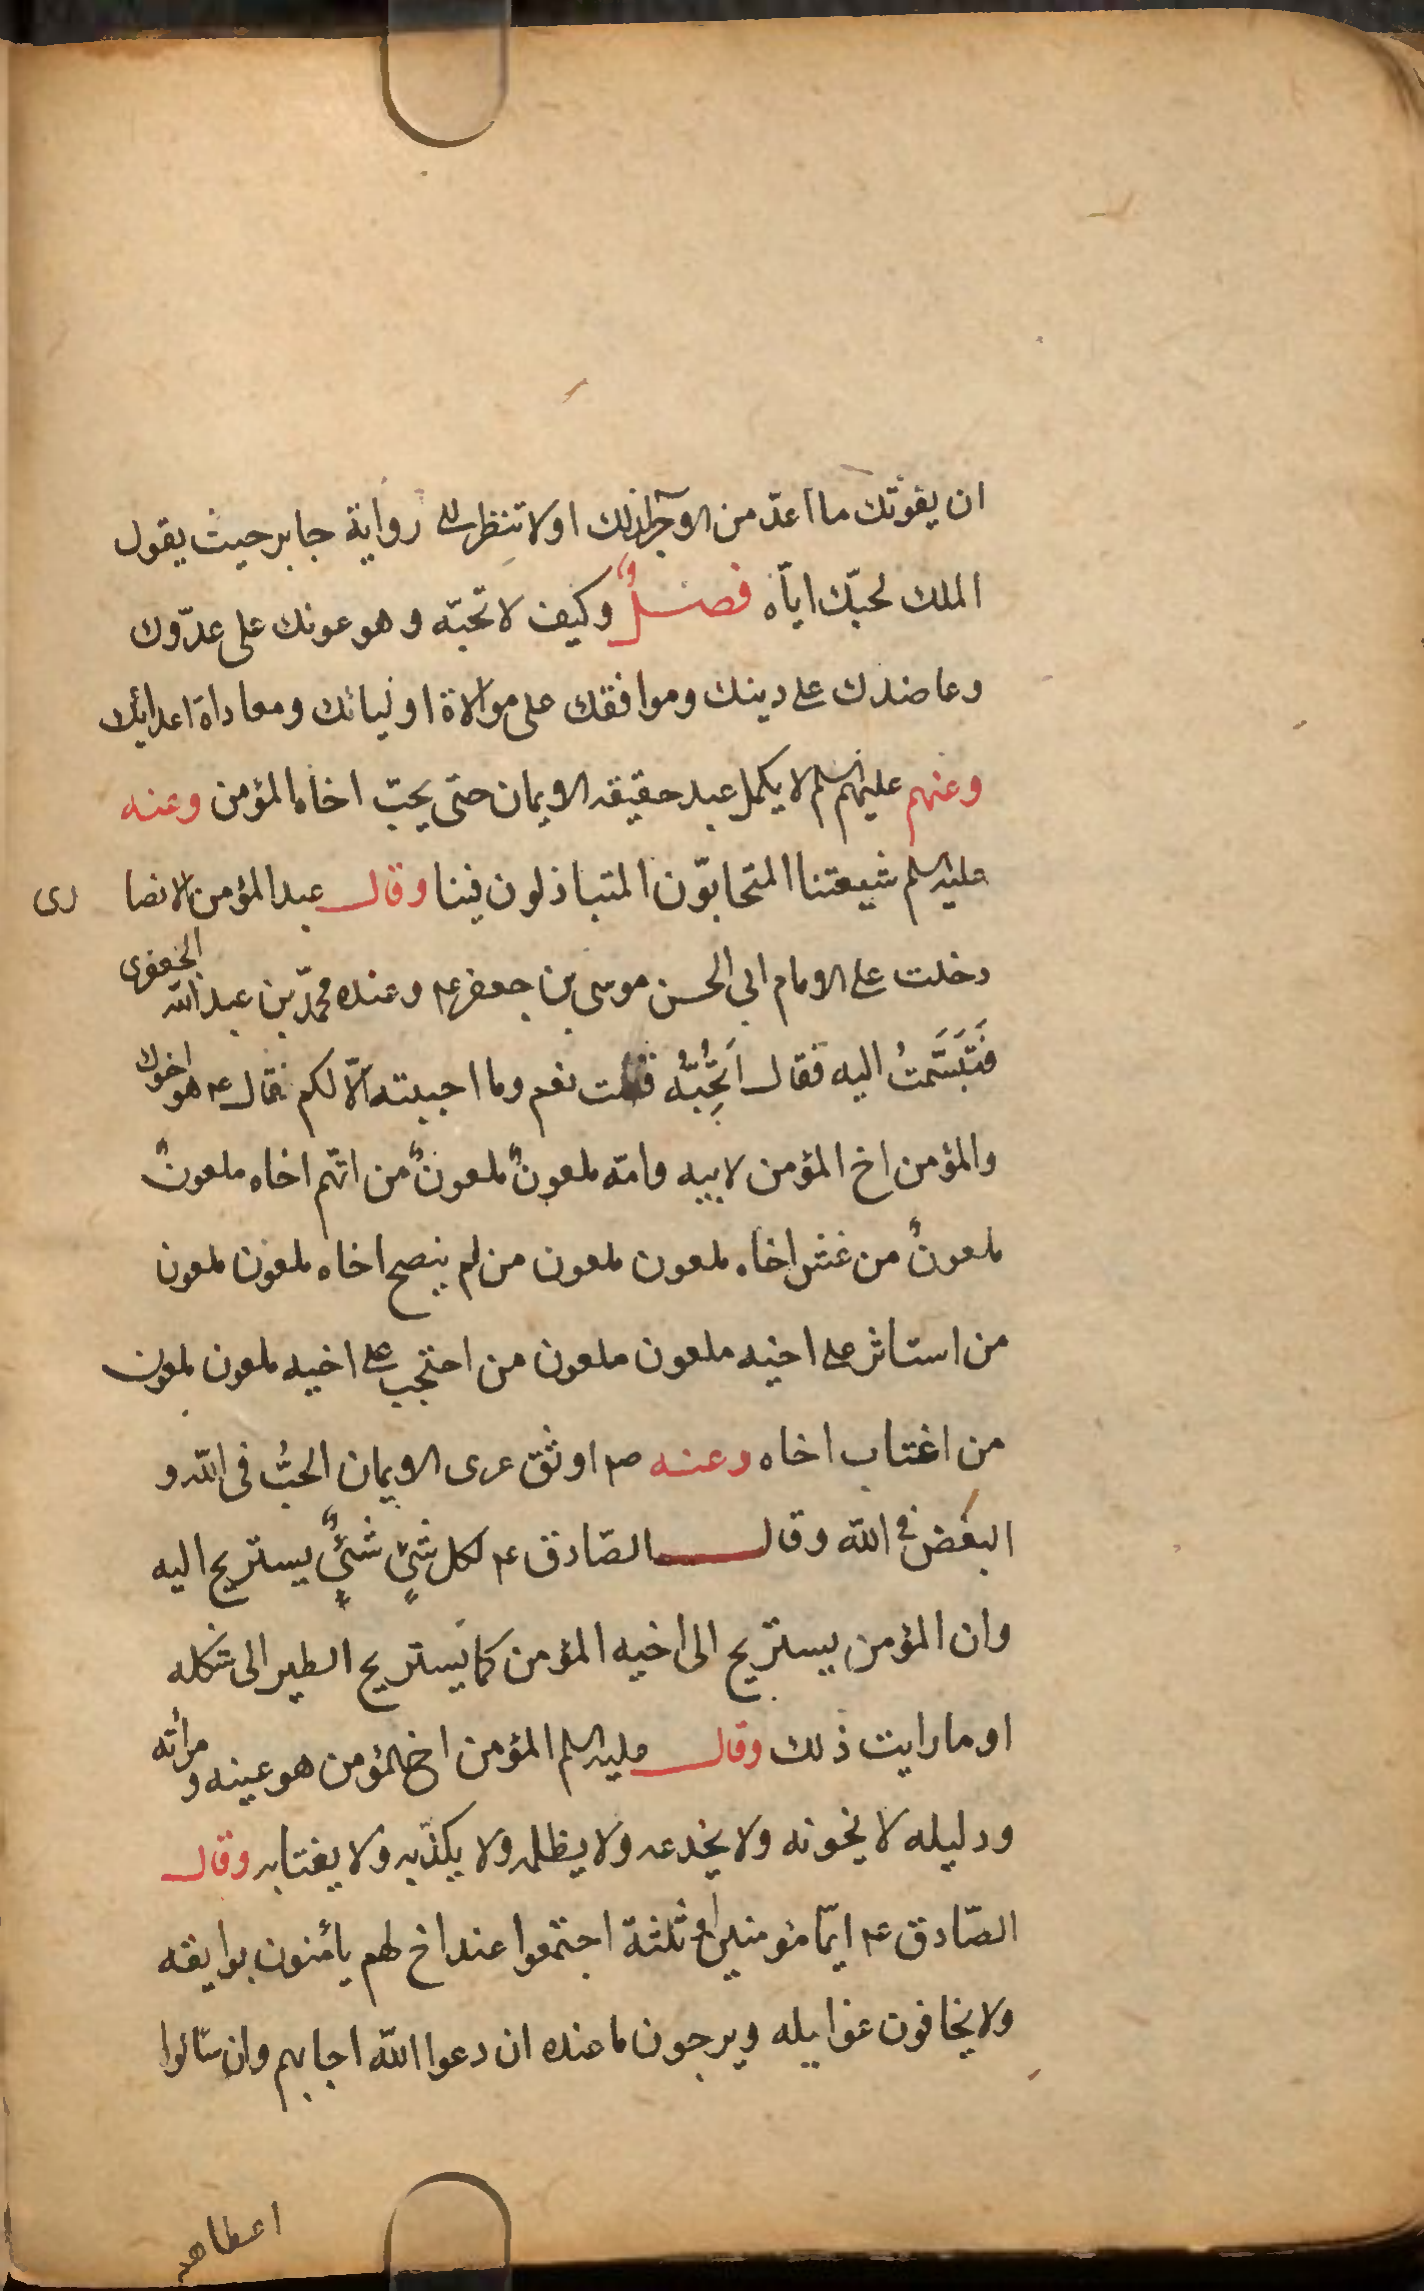 ان يفوتك ما اعدّ من الاجر لذلك اولا تنظر الى رواية جابر حيث يقول
الملك لحبّك ايّاه فصلٌ وكيف لا تحبّه وهو عونك على عدوّك
وعاضدك على دينك وموافقك على موالاة اوليائك ومعاداة اعدائك
وعنهم عليهم السلم لا يكمل عبد حقيقه الايمان حتى يحبّ اخاه المؤمن وعنه
عليه السلم شيعتنا المتحابّون المتباذلون فينا وقال عبد المؤمن الانصا رى
دخلت على الامام ابى الحسن موسى بن جعفر ع وعنده محمّد بن عبد اللّه الجعفرى
فَتَبَسَّمتُ اليه فقال اَتُحِبُّه قلت نعم وما احببته الّا لكم فقال ع هو اخوك
والمؤمن اخ المؤمن لابيه وامّه ملعونٌ ملعونٌ من اتّهم اخاه ملعونٌ
ملعونٌ من غش اخاه ملعون ملعون من لم ينصح اخاه ملعون ملعون
من استاثر على اخيه ملعون ملعون من احتجب على اخيه ملعون ملعون
من اغتاب اخاه وعنه ص اوثق عرى الايمان الحبُّ فى اللّه و
البغض فى اللّه وقال الصّادق ع لكل شئٍ شئٌ يستريح اليه
وان المؤمن يستريح الى اخيه المؤمن كما يستريح الطير الى شكله
اوما رايت ذلك وقال عليه السلم المؤمن اخ المؤمن هو عينه و مرأته
ودليله لا يخونه ولا يخدعه ولا يظلمه ولا يكذّبه ولا يغتابه وقال
الصّادق ع ايّما مؤمنين او ثلثة اجتمعوا عند اخ لهم يأمنون بوايقه
ولا يخافون غوايله ويرجون ما عنده ان دعوا اللّه اجابهم وان سألوا
اعطاهم